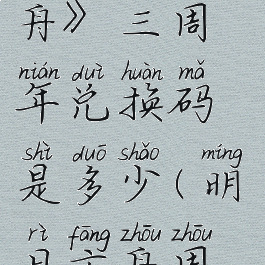 舟》三周
nián duì huàn mǎ
年兑换码
shì duō shǎo míng
是多少(明
rì fāng zhōu zhōu
日方舟周